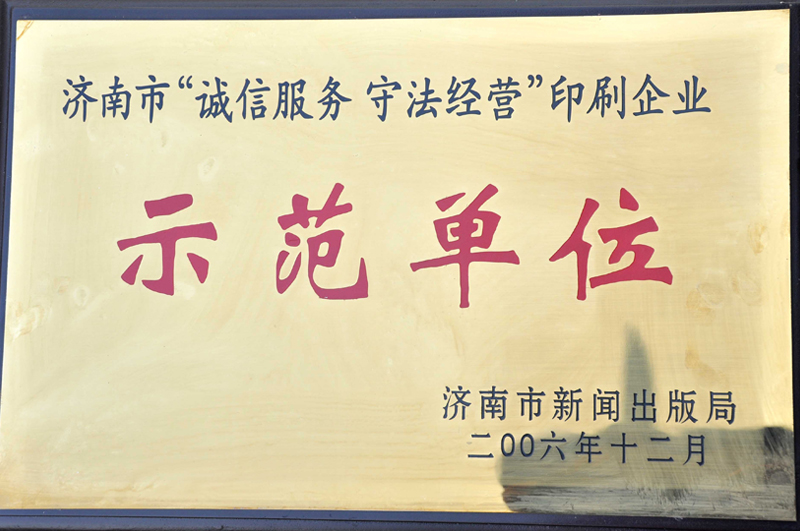 济南市“诚信服务 守法经营”印刷企业
示范单位
济南市新闻出版局
二00六年十二月